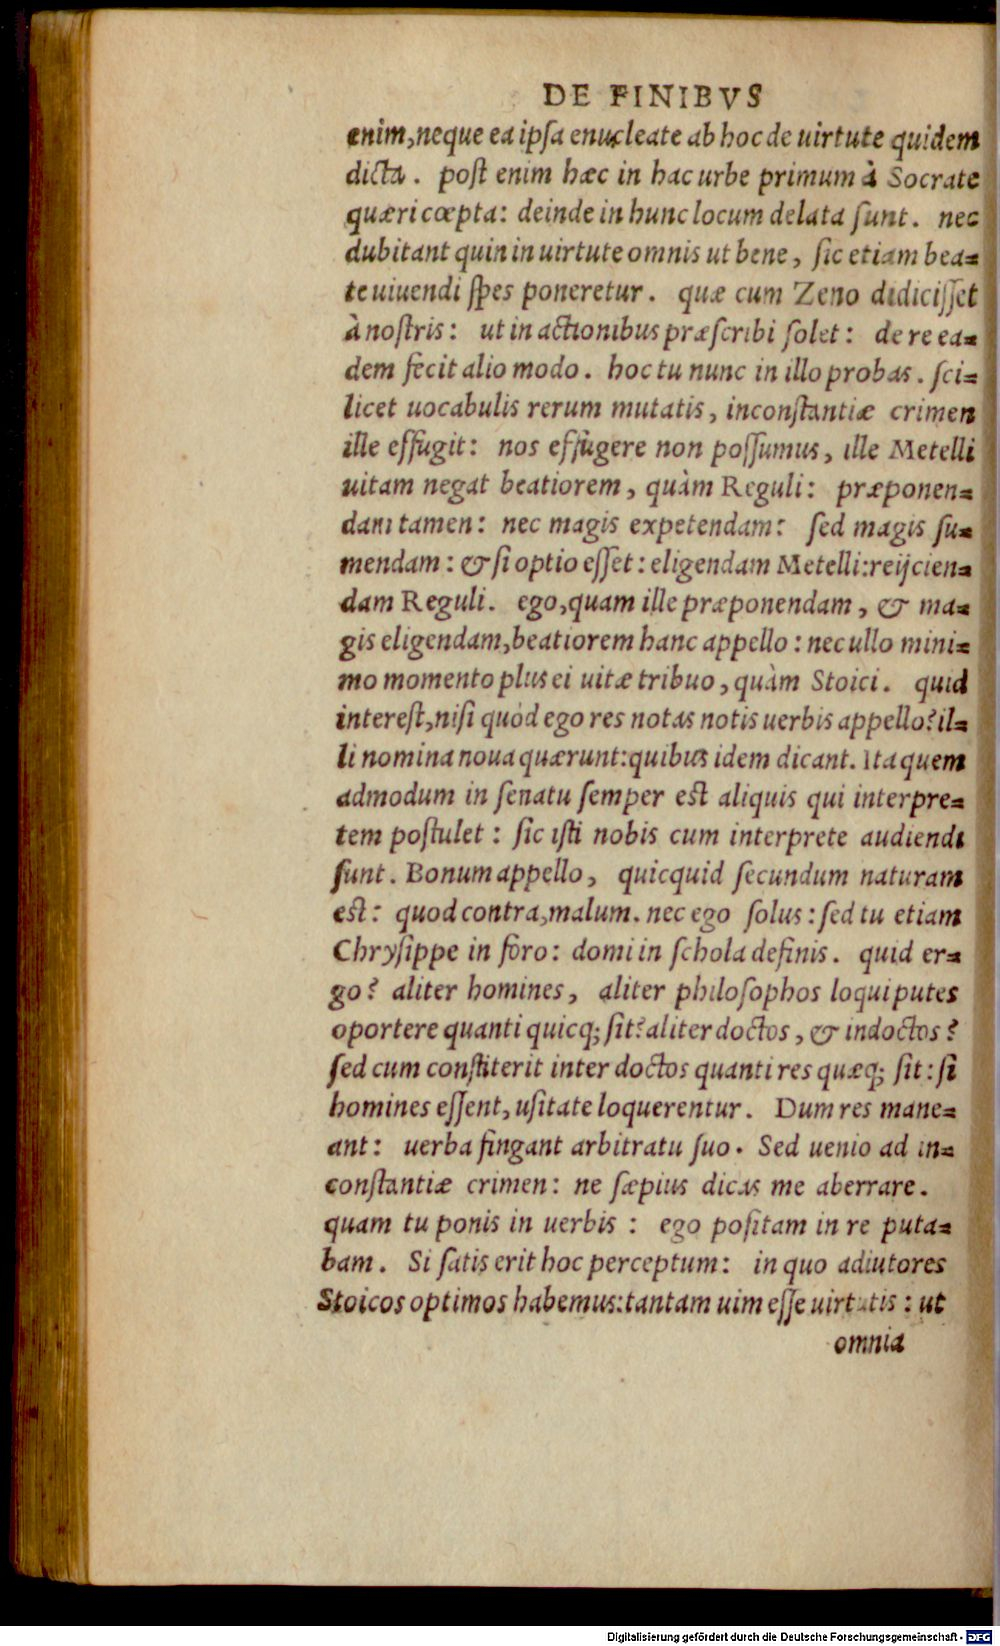 DE FINIBVS
enim,neque ea ipſa enucleate ab hoc de uirtute quidem
dicta. poſt enim hæc in hac urbe primum à Socrate
quæri cœpta: deinde in hunc locum delata ſunt. nec
dubitant quin in uirtute omnis ut bene, ſic etiam bea=
te uiuendi ſpes poneretur. quæ cum Zeno didiciſſet
à noſtris: ut in actionibus præſcribi ſolet: de re ea=
dem fecit alio modo. hoc tu nunc in illo probas. ſci=
licet uocabulis rerum mutatis, inconſtantiæ crimen
ille effugit: nos effugere non poſſumus, ille Metelli
uitam negat beatiorem, quàm Reguli: præponen=
dam tamen: nec magis expetendam: ſed magis ſu=
mendam: & ſi optio eſſet: eligendam Metelli:reijcien=
dam Reguli. ego,quam ille præponendam, & ma=
gis eligendam,beatiorem hanc appello: nec ullo mini=
mo momento plus ei uitæ tribuo, quàm Stoici. quid
intereſt,niſi quòd ego res notas notis uerbis appello?il=
li nomina noua quærunt:quibus idem dicant. Ita quem
admodum in ſenatu ſemper eſt aliquis qui interpre=
tem poſtulet: ſic iſti nobis cum interprete audiendi
ſunt. Bonum appello, quicquid ſecundum naturam
eſt: quod contra,malum. nec ego ſolus: ſed tu etiam
Chryſippe in foro: domi in ſchola definis. quid er=
go? aliter homines, aliter philoſophos loqui putes
oportere quanti quicq; ſit? aliter doctos, & indoctos?
ſed cum conſtiterit inter doctos quanti res quæq; ſit: ſi
homines eſſent, uſitate loquerentur. Dum res mane=
ant: uerba fingant arbitratu ſuo. Sed uenio ad in=
conſtantiæ crimen: ne ſæpius dicas me aberrare.
quam tu ponis in uerbis: ego poſitam in re puta=
bam. Si ſatis erit hoc perceptum: in quo adiutores
Stoicos optimos habemus:tantam uim eſſe uirtutis: ut
omnia
Digitalisierung gefördert durch die Deutsche Forschungsgemeinschaft - DFG